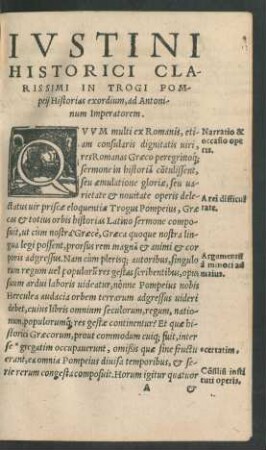 IVSTINI
HISTORICI CLA-
RISSIMI IN TROGI POM-
peij Historias exordium, ad Antoni-
num Imperatorem.
QVVM multi ex Romanis, eti-
am consularis dignitatis uiri,
res Romanas Græco peregrinoq́;
sermone in historiā cōtulissent,
seu æmulatione gloriæ, seu ua-
rietate & nouitate operis dele-
ctatus uir priscæ eloquentiæ Trogus Pompeius, Græ-
cas & totius orbis historias Latino sermone compo-
suit, ut cùm nostra Græcè, Græca quoque nostra lin-
gua legi possent, prorsus rem magnā & animi & cor-
poris adgressus. Nam cùm plerisq; autoribus, singulo-
rum regum uel populorū res gestas scribentibus, opus
suum ardui laboris uideatur, nónne Pompeius nobis
Herculea audacia orbem terrarum adgressus uideri
debet, cuius libris omnium seculorum, regum, natio-
num, populorumq́; res gestæ continentur? Et quæ hi-
storici Græcorum, prout commodum cuiq; fuit, inter
se * gregatim occupauerunt, omissis quæ sine fructu
erant, ea omnia Pompeius diuisa temporibus, & se-
rie rerum congesta composuit. Horum igitur quatuor
A &
Narratio &
occasio ope
ris.
A rei difficul
tate.
Argumentū
à minori ad
maius.
*certatim.
Cōsiliū insti
tuti operis.